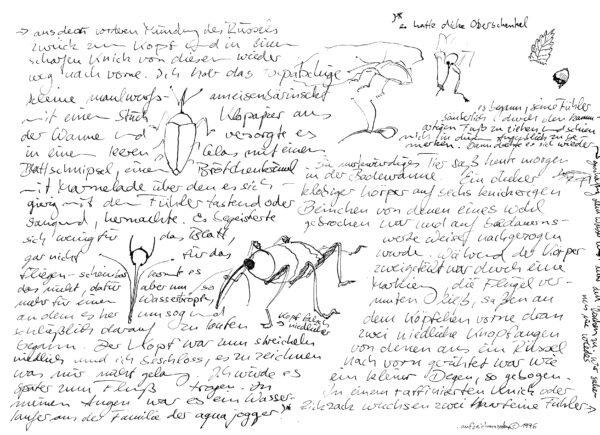 → aus der vorderen Mündung des Rüssels
zurück zum Kopf und in einem
scharfen Knick von diesem wieder
weg nach vorne. Ich hab das tapsbeinige
kleine maulwurfs- ameisenbärinsekt
mit einem Stück Klopapier aus
der Wanne und versorgte es
in einem leeren Glas mit einem
Blattschnipsel, einem Brötchenkrümel
mit Marmelade über den es sich
gierig mit den Fühlern tastend oder
saugend, hermachte. Es begeisterte
sich wenig für das Blatt,
gar nicht für das
Fliegen-
das nicht, dafür konnt es
mehr für einen aber um so
Wassertropfen
an dem es herumsog und
schließlich darauf zu laufen
begann. Der Kopf war zum streicheln
niedlich und ich beschloss, es zu zeichnen
was mir nicht gelang. Ich würde es
später zum Fluß tragen. In
meinen Augen war es ein Wasser-
läufer aus der Familie der aqua jogger)*
Kopf falsch
niedlicher
)* hatte dicke Oberschenkel
es begann, seine Fühler
säuberlich durch den
Fuß zu ziehen und schien
mich in dem Augenblick zu be-
merken. Dann drehte es sich wieder
Ein merkwürdiges Tier saß heute morgen
in der Badewanne Ein dicker
klobiger Körper auf sechs knickerigen
Beinchen von denen eines wohl
gebrochen war und auf bedauerns-
werte Weise nachgezogen
wurde. Während der Körper
zweigeteilt war durch eine
Markierung die Flügel ver-
muten ließ, saßen an
dem Köpfchen vorne dran
zwei niedliche Knopfaugen
von denen aus ein Rüssel
nach vorn gerichtet war wie
ein kleiner Degen, so gebogen.
In einem raffinierten Knick oder
Zickzack wuchsen zwei haarfeine Fühler →
© 1996